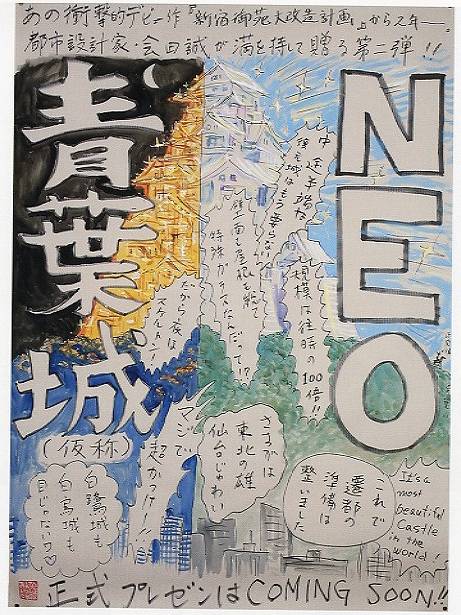 あの衝撃的デビュー作『新宿御苑大改造計画』から2年―。
都市設計家・会田誠が満を持して贈る第二弾!!
NEO
青葉城
(仮称)
中途半端な
復元城はもう要らない!
規模は往時の100倍!!
壁面も屋根も総て
特殊ガラスなんだって!?
だから夜は
スケルトン!
さすがは
東北の雄
仙台じゃわい
マジで
超かっけー!!
It's a
most
beautiful
Castle
in the
world!
これで
遷都の
準備は
整いました
白鷺城も
白鳥城も
目じゃないワ♡
正式プレゼンはCOMING SOON!!